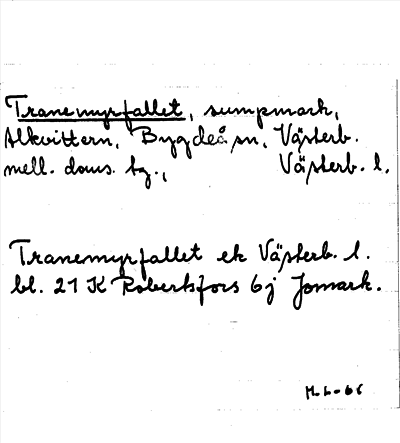 Tranemyrfallet, sumpmark,
Alkvittern, Bygdeå sn, Västerb.
mell. doms. tg., Västerb. l.
Tranemyrfallet ek Västerb. l.
bl. 21 K Robertsfors 6j Jomark.